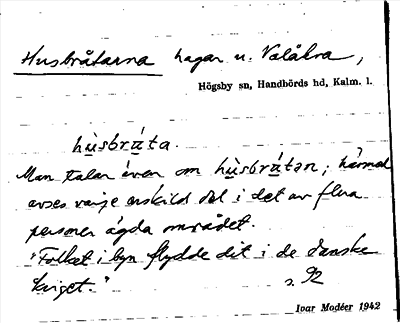 Husbråtarna hagar u. Valåkra,
Högsby sn, Handbörds hd, Kalm. l.
hùsbrá̀ta.
Man talar även om hùsbrá̀tan; härmed
avses varje enskild del i det av flera
personer ägda området.
"Folket i byn flydde dit i de danske
kriget."
s. 92
Ivar Modéer 1942